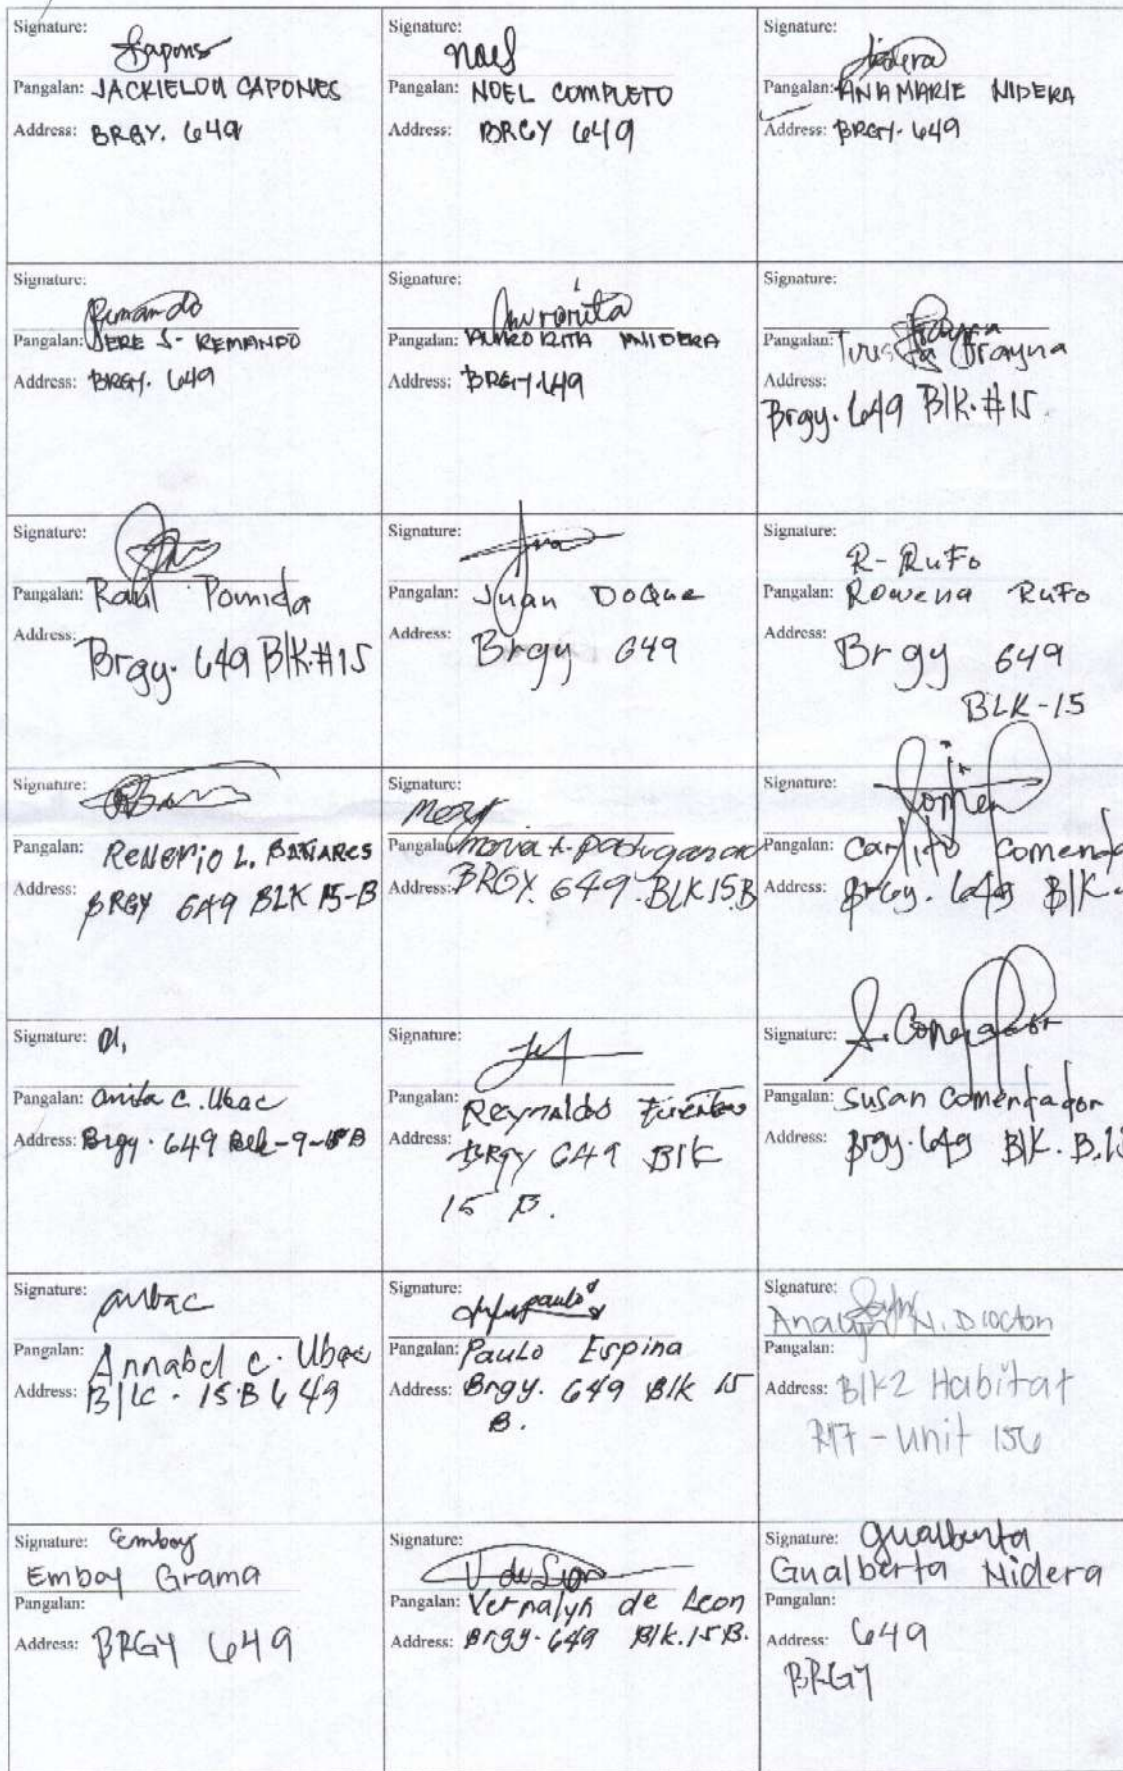 Signature:
Capones
Pangalan: JACKIELOU CAPONES
Address: BRGY. 649
Signature:
Noel
Pangalan: NOEL COMPLETO
Address: BRGY 649
Signature:
Nidera
Pangalan: ANAMARIE NIDERA
Address: BRGY. 649
Signature:
Remando
Pangalan: JERE S. REMANDO
Address: BRGY. 649
Signature:
Aurorita
Pangalan: NIDERA
Address: BRGY. 649
Signature:
Pangalan: Grayna
Address:
Brgy. 649 Blk. #15
Signature:
Pangalan: Raul Pomida
Address:
Brgy. 649 Blk. #15
Signature:
Pangalan: Juan DoQue
Address: Brgy 649
Signature:
R- RuFo
Pangalan: Rowena RuFo
Address:
Brgy 649
BLK-15
Signature:
Pangalan: Renerio L. BAÑARES
Address:
BRGY 649 BLK 15-B
Signature:
Pangalan: Maria A.
Address: BRGY. 649. BLK 15.B
Signature:
Pangalan: Carlito Comenda
Address: Brgy. 649 Blk.
Signature:
Pangalan: Anita C. Ubac
Address: Brgy. 649 Blk-9-15B
Signature:
Pangalan: Reynaldo Fuentes
Address: BRGY 649 Blk
15 B.
Signature: S. Comendador
Pangalan: Susan Comendador
Address: Brgy. 649 Blk. B.15
Signature: aubac
Pangalan: Annabel C. Ubac
Address: Blk. 15.B 649
Signature: paulo
Pangalan: Paulo Espina
Address: Brgy. 649 Blk 15
B.
Signature:
Analyn N. Diocton
Pangalan:
Address: Blk2 Habitat
R17 - Unit 156
Signature: Emboy
Emboy Grama
Pangalan:
Address: BRGY 649
Signature:
V de Leon
Pangalan: Vernalyn de Leon
Address: Brgy. 649 Blk. 15 B.
Signature: Gualberta
Gualberta Nidera
Pangalan:
Address: 649
BRGY